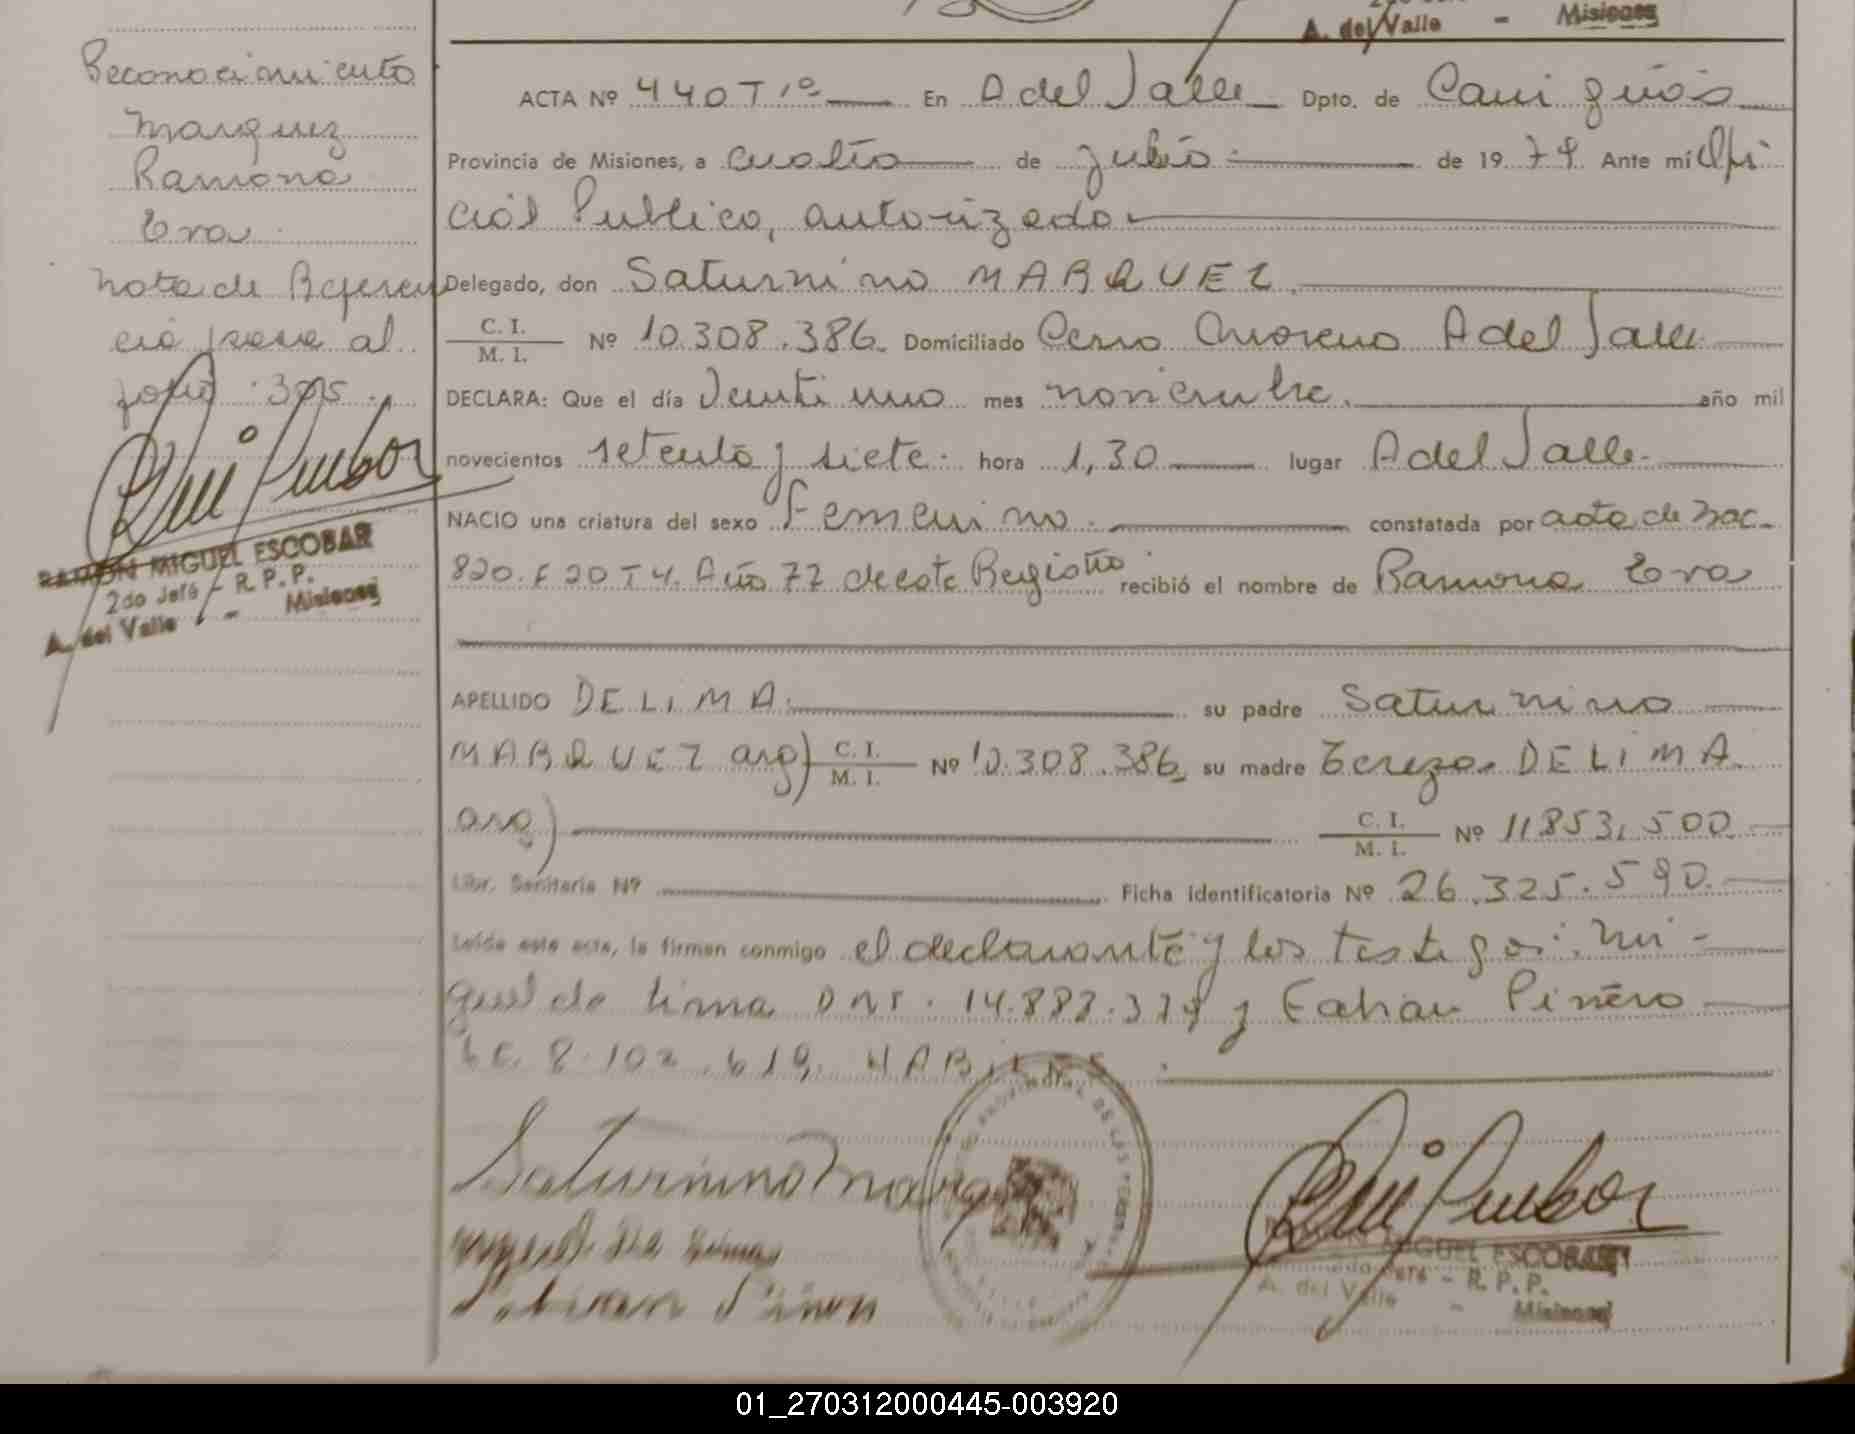 A. del Valle - Misiones
Reconocimiento
Marquez
Ramona
Eva
Nota de Referen
cia pasa al
folio 395.
RAMON MIGUEL ESCOBAR
2do Jefe - R. P. P.
A. del Valle - Misiones
ACTA Nº 440 T 1º En A del Valle Dpto. de Cainguás
Provincia de Misiones, a cuatro de julio de 1979 Ante mí Ofi
cial Publico, autorizado
Delegado, don Saturnino MARQUEZ
C. I. / M. I. Nº 10.308.386. Domiciliado Cerro Moreno A del Valle
DECLARA: Que el día Veintiuno mes noviembre. año mil
novecientos setenta y siete. hora 1,30 lugar A del Valle.
NACIO una criatura del sexo Femenino. constatada por acta de Nac.
820. F 20 T 4. Año 77 de este Registro recibió el nombre de Ramona Eva
APELLIDO DE LIMA. su padre Saturnino
MARQUEZ arg) C. I. / M. I. Nº 10.308.386, su madre Tereza DE LIMA
arg) C. I. / M. I. Nº 11.853.500
Libr. Sanitaria Nº Ficha identificatoria Nº 26.325.590.
Leída este acta, la firman conmigo el declarante y los testigos: Mi-
guel de lima DNI. 14.882.379 y Fabian Piñero
LE. 8.102.619. HABILES.
Saturnino Marquez
Miguel de lima
Fabian Piñero
MIGUEL ESCOBAR
2do Jefe - R. P. P.
A. del Valle - Misiones
01_270312000445-003920